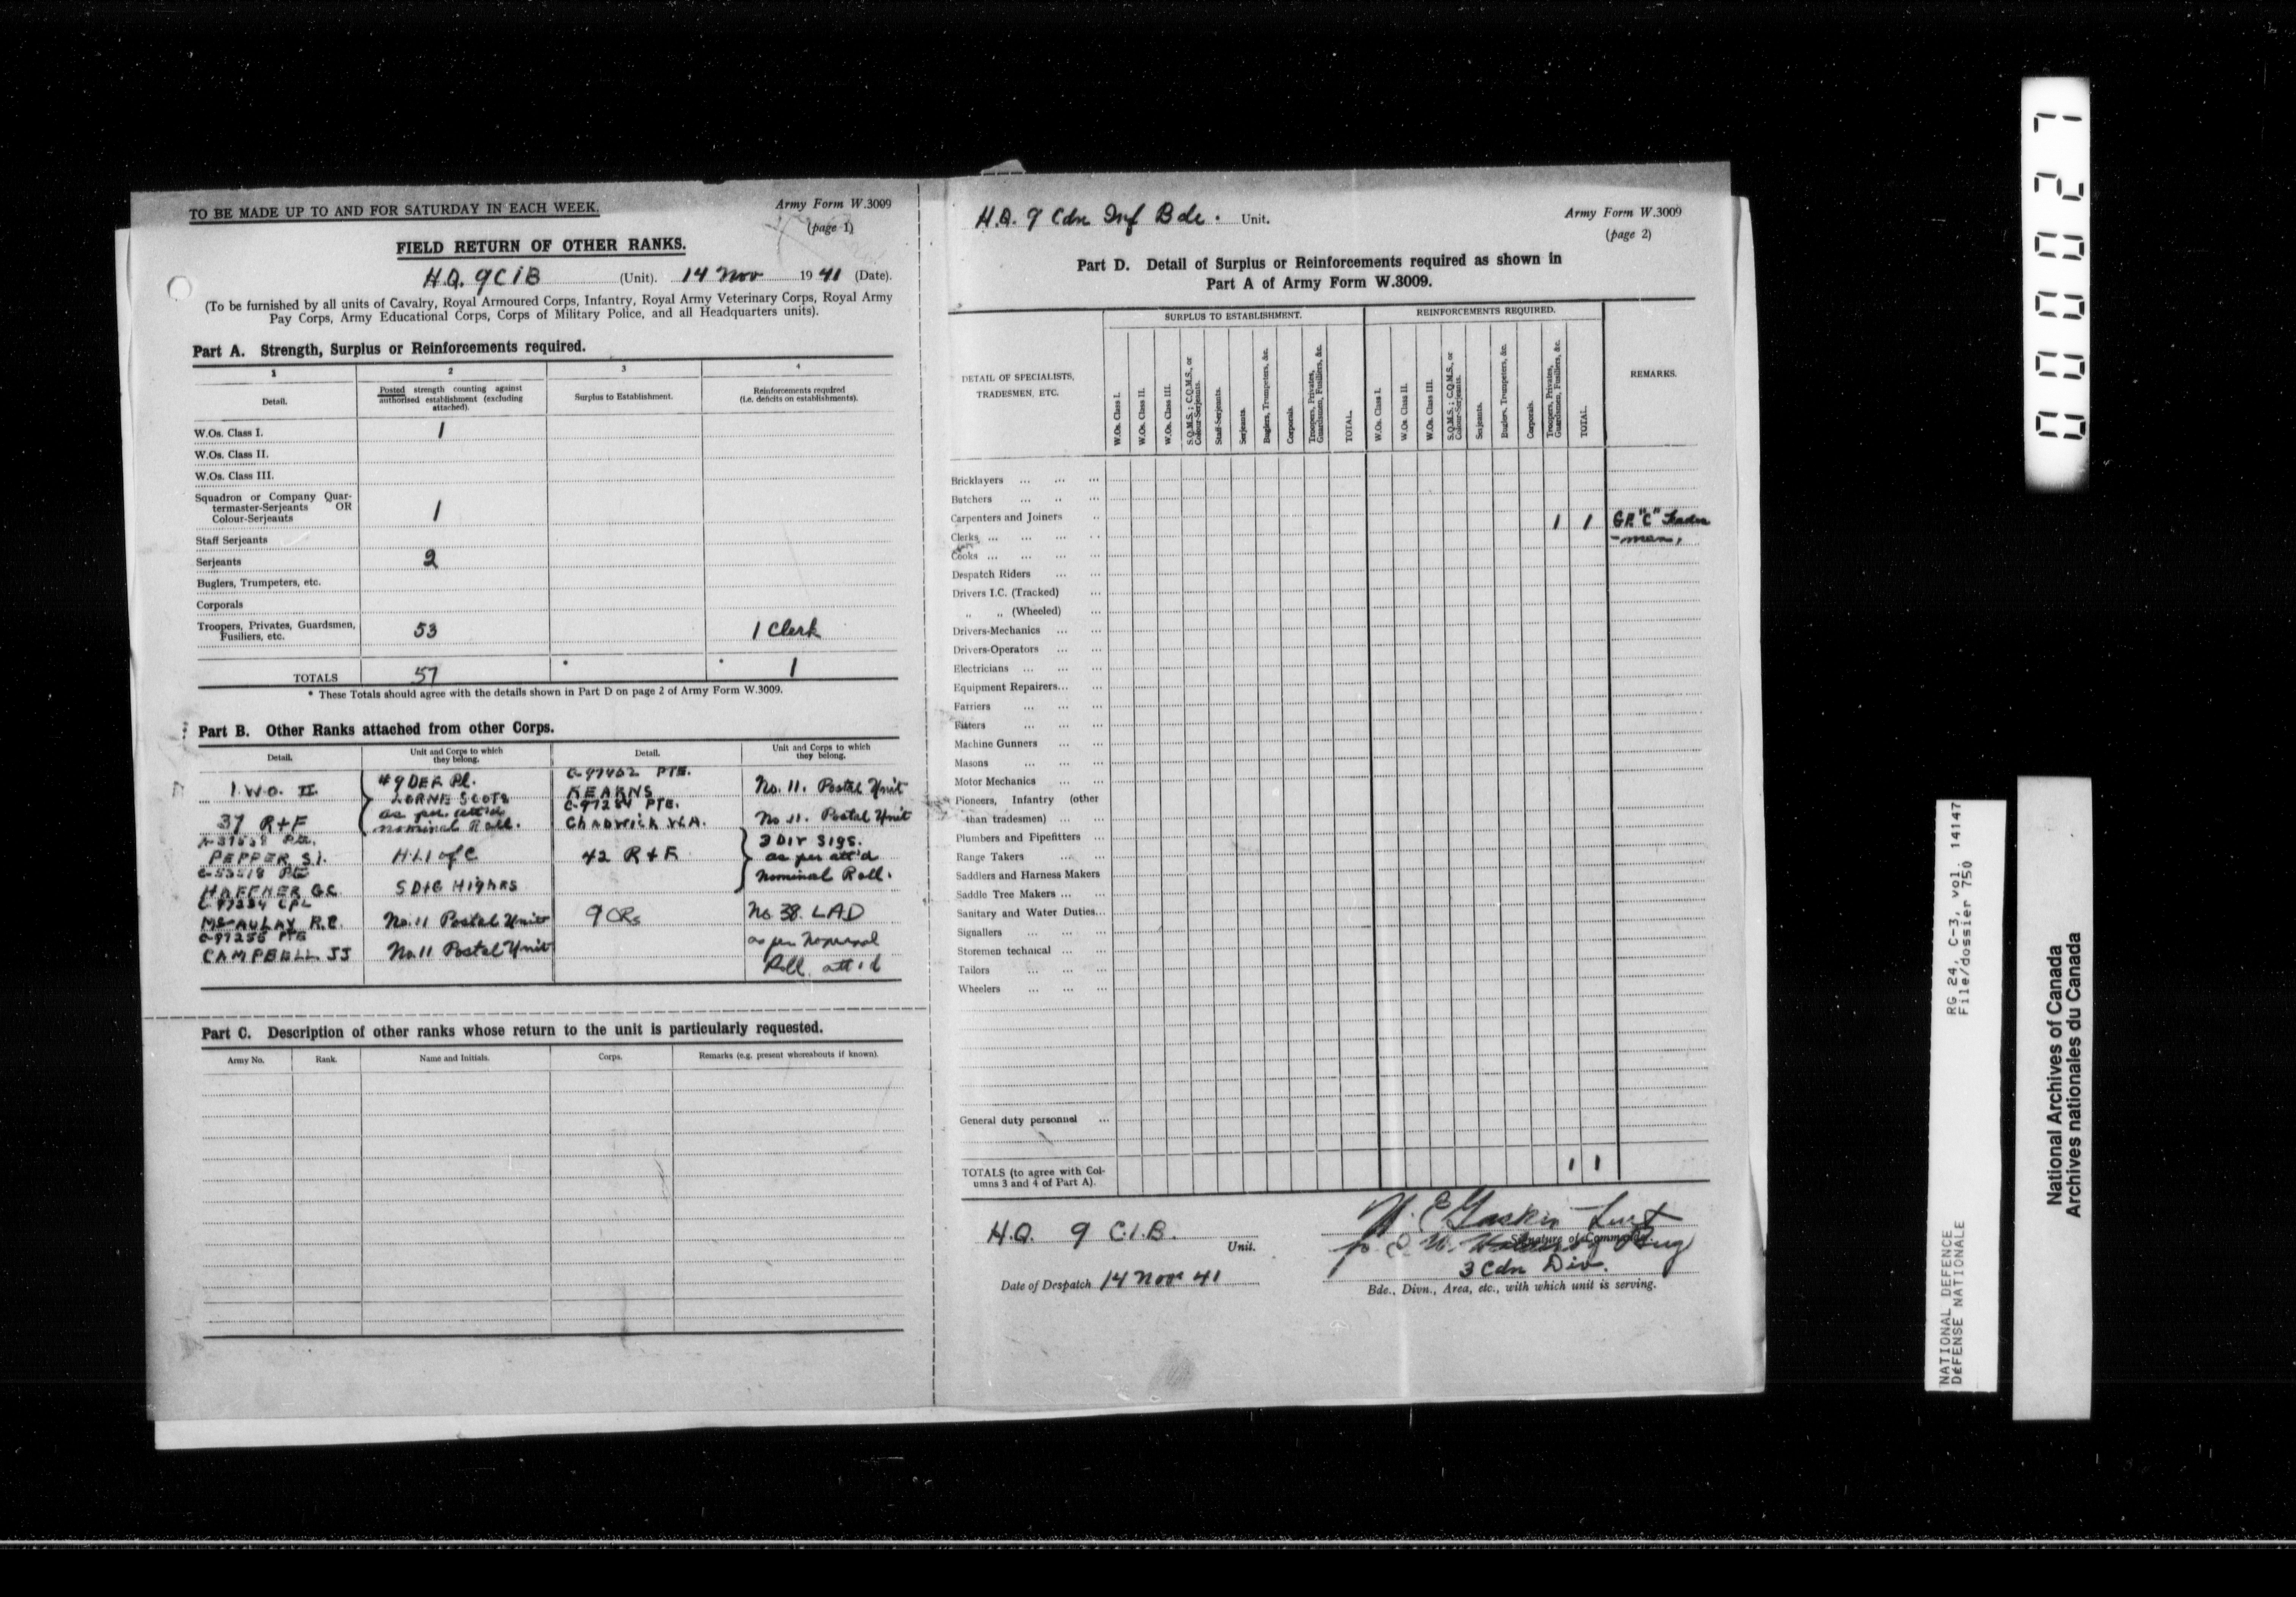 TO BE MADE UP TO AND FOR SATURDAY IN EACH WEEK.
Army Form W.3009
(page 1)
FIELD RETURN OF OTHER RANKS.
H.Q. 9 C I B (Unit). 14 Nov 1941 (Date).
(To be furnished by all units of Cavalry, Royal Armoured Corps, Infantry, Royal Army Veterinary Corps, Royal Army
Pay Corps, Army Educational Corps, Corps of Military Police, and all Headquarters units).
Part A. Strength, Surplus or Reinforcements required.
1 2 3 4
Detail.
Posted strength counting against
authorised establishment (excluding
attached).
Surplus to Establishment.
Reinforcements required
(i.e. deficits on establishments).
W.Os. Class I. 1
W.Os. Class II.
W.Os. Class III.
Squadron or Company Quar-
termaster-Serjeants OR
Colour-Serjeants 1
Staff Serjeants
Serjeants 2
Buglers, Trumpeters, etc.
Corporals
Troopers, Privates, Guardsmen,
Fusiliers, etc. 53 1 Clerk
TOTALS 57 * * 1
* These Totals should agree with the details shown in Part D on page 2 of Army Form W.3009.
Part B. Other Ranks attached from other Corps.
Detail.
Unit and Corps to which
they belong.
Detail.
Unit and Corps to which
they belong.
1 W.O. II
37 R+F
#9 DEF Pl.
LORNE SCOTS
as per att'd
nominal Roll.
PEPPER S.I. H.L.I of C
HAFFNER G.C. S D & G HighRS
C-97234 CPL
McAULAY R.R. No. 11 Postal Unit
C-97256 PTE
CAMPBELL JJ No. 11 Postal Unit
C-97462 PTE.
KEARNS No. 11. Postal Unit
C-97284 PTE.
CHADWICK W.A. No 11. Postal Unit
42 R & F
3 DIV SIGS.
as per att'd
nominal Roll.
9 ORs No 38. LAD
as per nominal
Roll att'd
Part C. Description of other ranks whose return to the unit is particularly requested.
Army No. Rank. Name and Initials. Corps. Remarks (e.g. present whereabouts if known).
H.Q. 9 Cdn Inf Bde. Unit.
Army Form W.3009
(page 2)
Part D. Detail of Surplus or Reinforcements required as shown in
Part A of Army Form W.3009.
DETAIL OF SPECIALISTS,
TRADESMEN, ETC.
SURPLUS TO ESTABLISHMENT.
W.Os. Class I.
W.Os. Class II.
W.Os. Class III.
S.Q.M.S.; C.Q.M.S., or
Colour-Serjeants.
Staff-Serjeants.
Serjeants.
Buglers, Trumpeters, &c.
Corporals.
Troopers, Privates,
Guardsmen, Fusiliers, &c.
TOTAL.
REINFORCEMENTS REQUIRED.
W.Os. Class I.
W.Os. Class II.
W.Os. Class III.
S.Q.M.S.; C.Q.M.S., or
Colour-Serjeants.
Serjeants.
Buglers, Trumpeters, &c.
Corporals.
Troopers, Privates,
Guardsmen, Fusiliers, &c.
TOTAL.
REMARKS.
Bricklayers ... ... ...
Butchers ... .. ...
Carpenters and Joiners .. 1 1 GP. "C" Trades
Clerks ... ... ... .. -men.
Cooks ... ... ... ...
Despatch Riders ... ...
Drivers I.C. (Tracked) ...
„ „ (Wheeled) ...
Drivers-Mechanics ... ...
Drivers-Operators ... ...
Electricians ... ... ...
Equipment Repairers... ...
Farriers ... ... ...
Fitters ... ... ...
Machine Gunners ... ...
Masons ... ... ...
Motor Mechanics ... ...
Pioneers, Infantry (other
than tradesmen) ... ...
Plumbers and Pipefitters ...
Range Takers ... ...
Saddlers and Harness Makers
Saddle Tree Makers ... ...
Sanitary and Water Duties...
Signallers ... ... ...
Storemen technical ... ...
Tailors ... ... ...
Wheelers ... ... ...
General duty personnel ...
TOTALS (to agree with Col-
umns 3 and 4 of Part A). 1 1
H.Q. 9 C.I.B. Unit.
Date of Despatch 14 Nov 41
Gaskin Lieut
Signature of Commander
3 Cdn Div.
Bde., Divn., Area, etc., with which unit is serving.
000027
NATIONAL DEFENCE RG 24, C-3, vol. 14147
DÉFENSE NATIONALE File/dossier 750
National Archives of Canada
Archives nationales du Canada